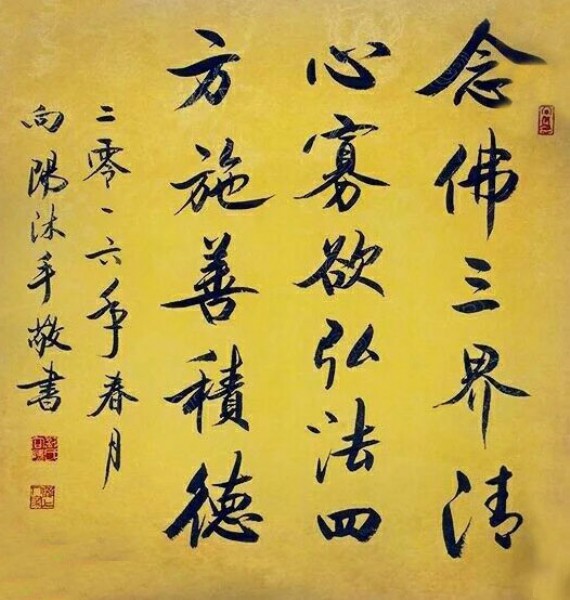 念佛三界清
心寡欲弘法四
方施善積德
二零一六年春月
向陽沐手敬書